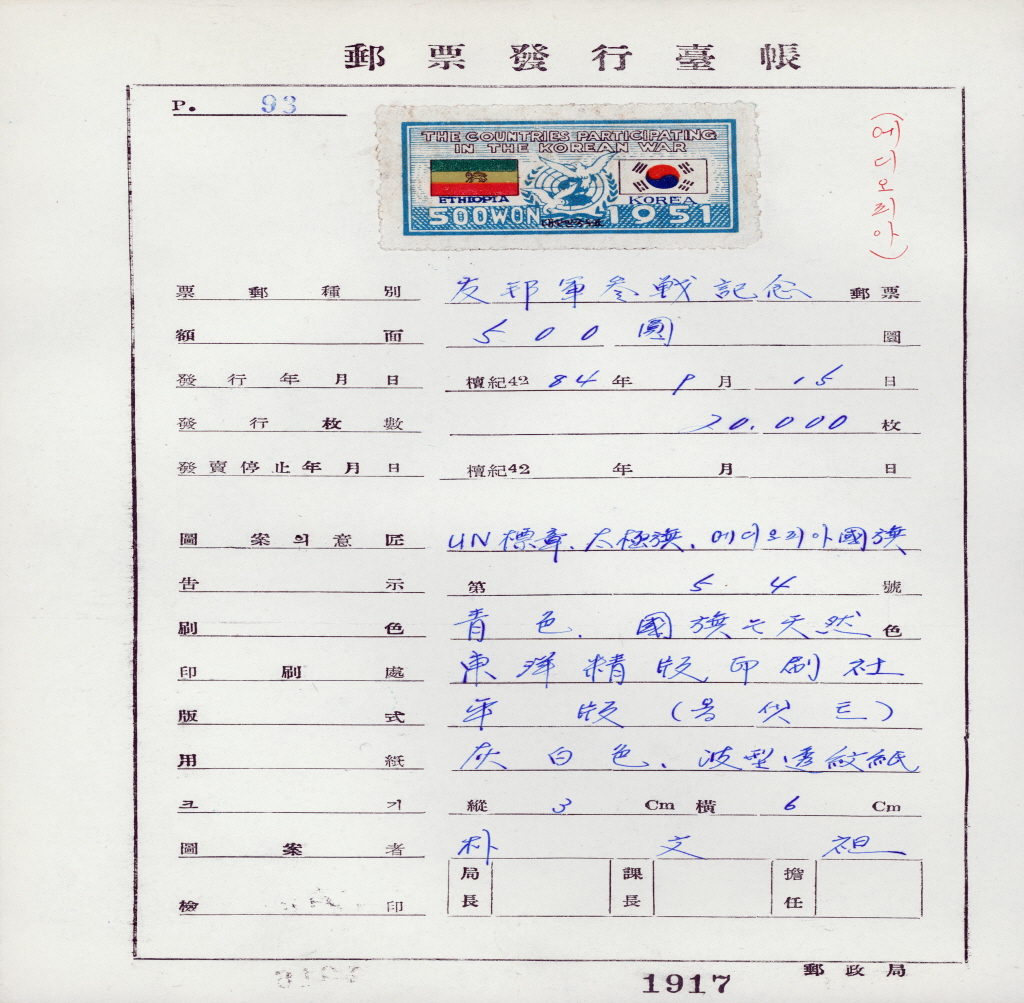 郵票發行臺帳
P. 93
THE COUNTRIES PARTICIPATING
IN THE KOREAN WAR
ETHIOPIA
KOREA
500WON
1951
(에디오피아)
票郵種別 友邦軍參戰記念 郵票
額面 500圓 圜
發行年月日 檀紀42 84年 9月 15日
發行枚數 20.000枚
發賣停止年月日 檀紀42 年 月 日
圖案의意匠 UN標章、太極旗、에디오피아國旗
告示 第 5.4 號
刷色 青色、國旗는天然色
印刷處 東洋精版印刷社
版式 平版(옵셋트)
用紙 灰白色、波型透紋紙
크기 縱 3 Cm 橫 6 Cm
圖案者 朴文祖
檢印 局長 課長 擔任
郵政局
1917